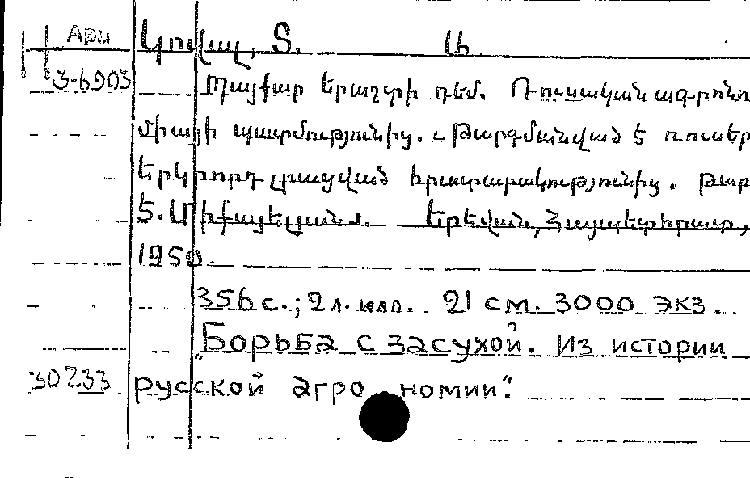 Арм
Կովալ, Տ. Ա.
3-6903 Պայքար երաշտի դեմ. Ռուսական ագրոնո
միայի պատմությունից. Թարգմանված է ռուսեր
երկրորդ լրացված հրատարակությունից. թար
Ե. Միքայելյանս. Երեվան, Հայպետհրատ,
1950
356 с.; 2 л. илл. 21 см. 3000 экз.
"Борьба с засухой. Из истории
30233 русской агрономии".